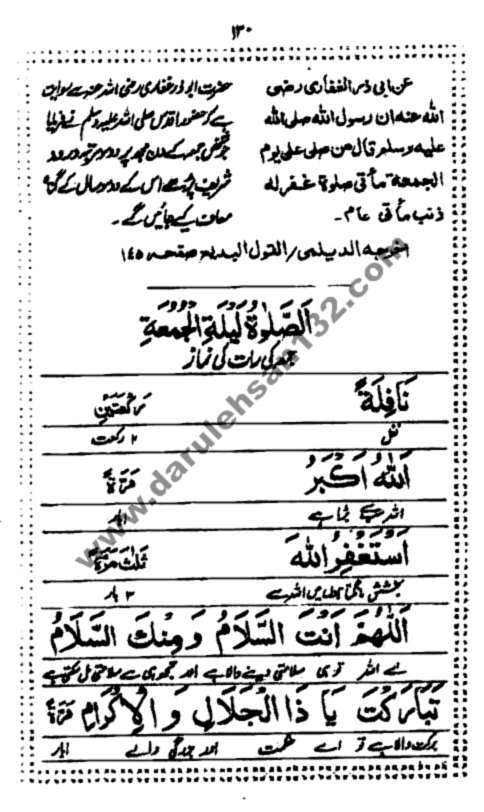 ۱۳۰
عن ابی ذر الغفاری رضی
الله عنه ان رسول الله صلی الله
علیه وسلم قال من صلی علی یوم
الجمعة مأتی صلوة غفر له
ذنب مأتی عام۔
حضرت ابوذر غفاری رضی اللہ عنہ سے روایت
ہے کہ حضور اقدس صلی اللہ علیہ وسلم نے فرمایا
جو شخص جمعہ کے دن مجھ پر دو سو مرتبہ درود
شریف پڑھے اس کے دو سو سال کے گناہ
معاف کیے جائیں گے۔
اخرجه الدیلمی/القول البدیع صفحہ ۱۴۵
اَلصَّلٰوةُ لَيْلَةِ الْجُمُعَةِ
جمعہ کی رات کی نماز
نَافِلَةً رَكْعَتَيْنِ
نفل ۲ رکعت
اَللهُ اَكْبَرُ مَرَّةً
اللہ سب سے بڑا ہے ابار
اَسْتَغْفِرُ اللهَ ثَلٰثَ مَرَّةً
بخشش مانگتا ہوں میں اللہ سے ۳ بار
اَللّٰهُمَّ اَنْتَ السَّلَامُ وَمِنْكَ السَّلَامُ
اے اللہ تو ہی سلامتی دینے والا ہے اور تجھ ہی سے سلامتی مل سکتی ہے
تَبَارَكْتَ يَا ذَا الْجَلَالِ وَالْاِكْرَامِ مَرَّةً
برکت والا ہے تو اے عظمت اور بزرگی والے ابار
www.darulehsan132.com